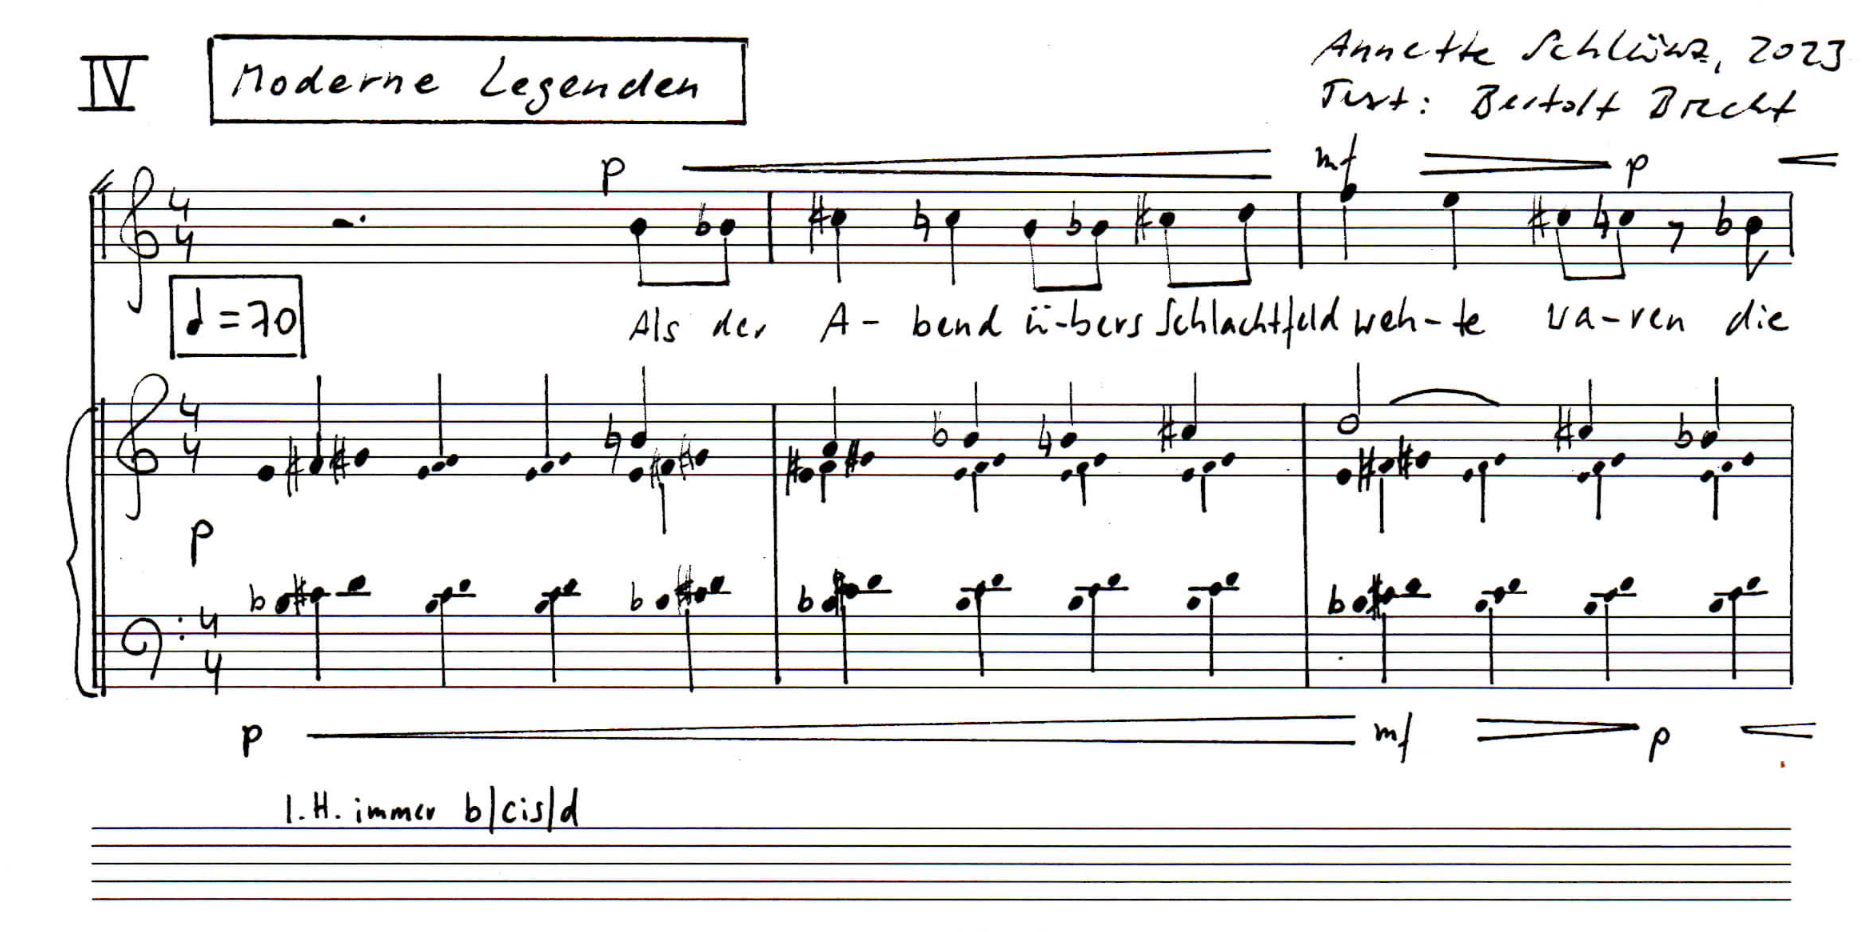 IV Moderne Legenden
Annette Schlünz, 2023
Text: Bertolt Brecht
p mf p
4
4
♩=70
Als der A- bend ü-bers Schlachtfeld weh-te wa-ren die
4
4
p
4
4
p mf p
l.H. immer b/cis/d